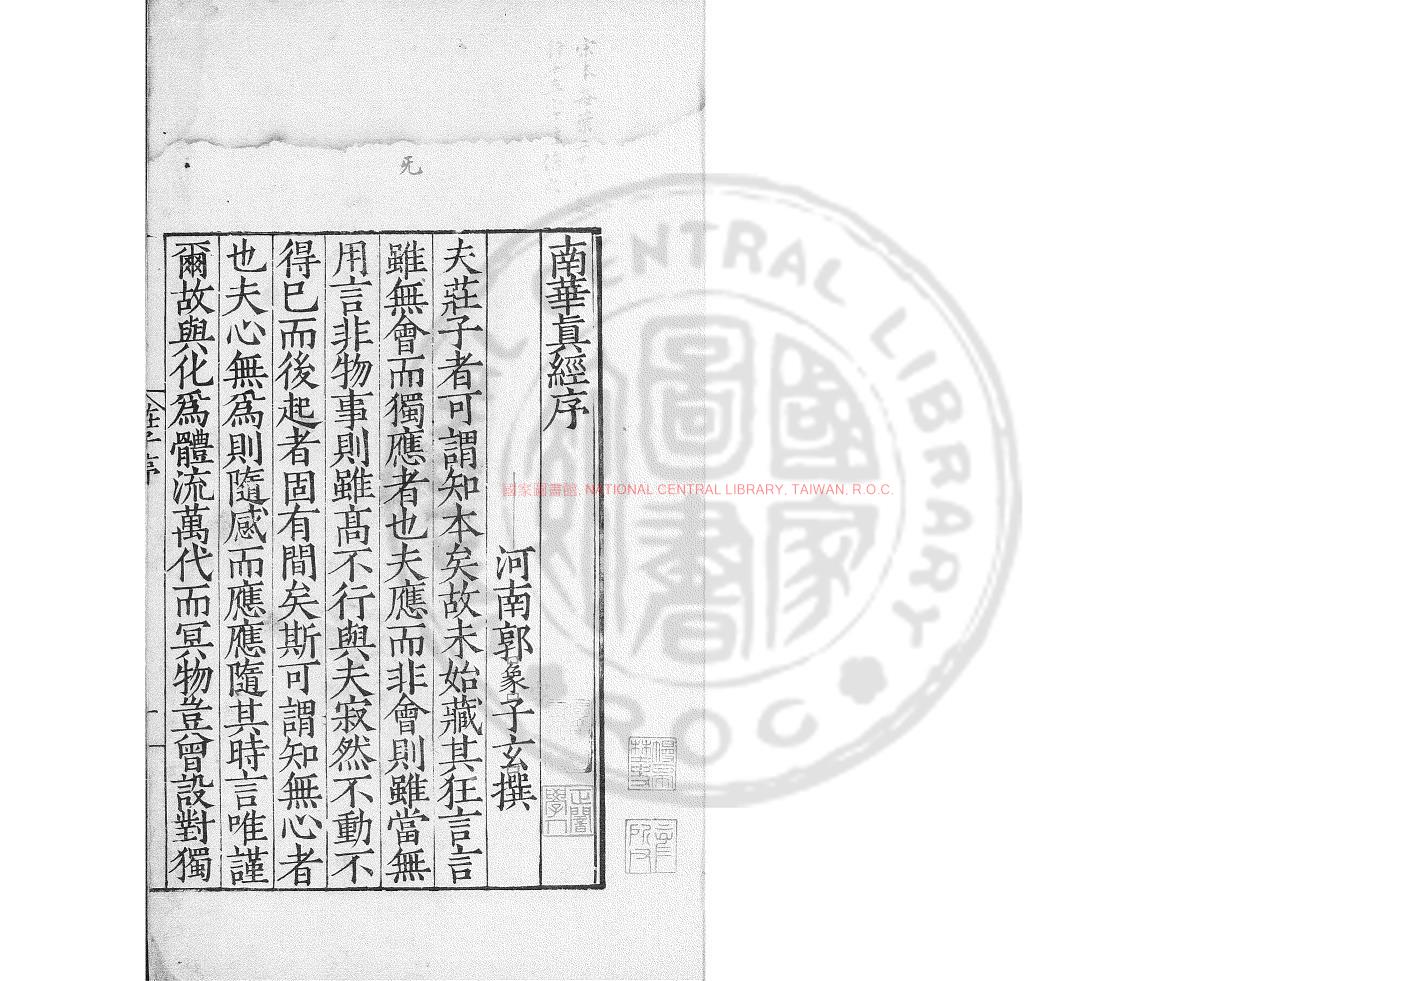 南華真經序
河南郭象子玄撰
夫莊子者可謂知本矣故未始藏其狂言言
雖無會而獨應者也夫應而非會則雖當無
用言非物事則雖髙不行與夫寂然不動不
得已而後起者固有間矣斯可謂知無心者
也夫心無爲則隨感而應應隨其時言唯謹
爾故與化爲體流萬代而冥物豈曾設對獨
莊子序
國家圖書館, NATIONAL CENTRAL LIBRARY, TAIWAN, R.O.C.
NATIONAL CENTRAL LIBRARY
R.O.C
國家圖書